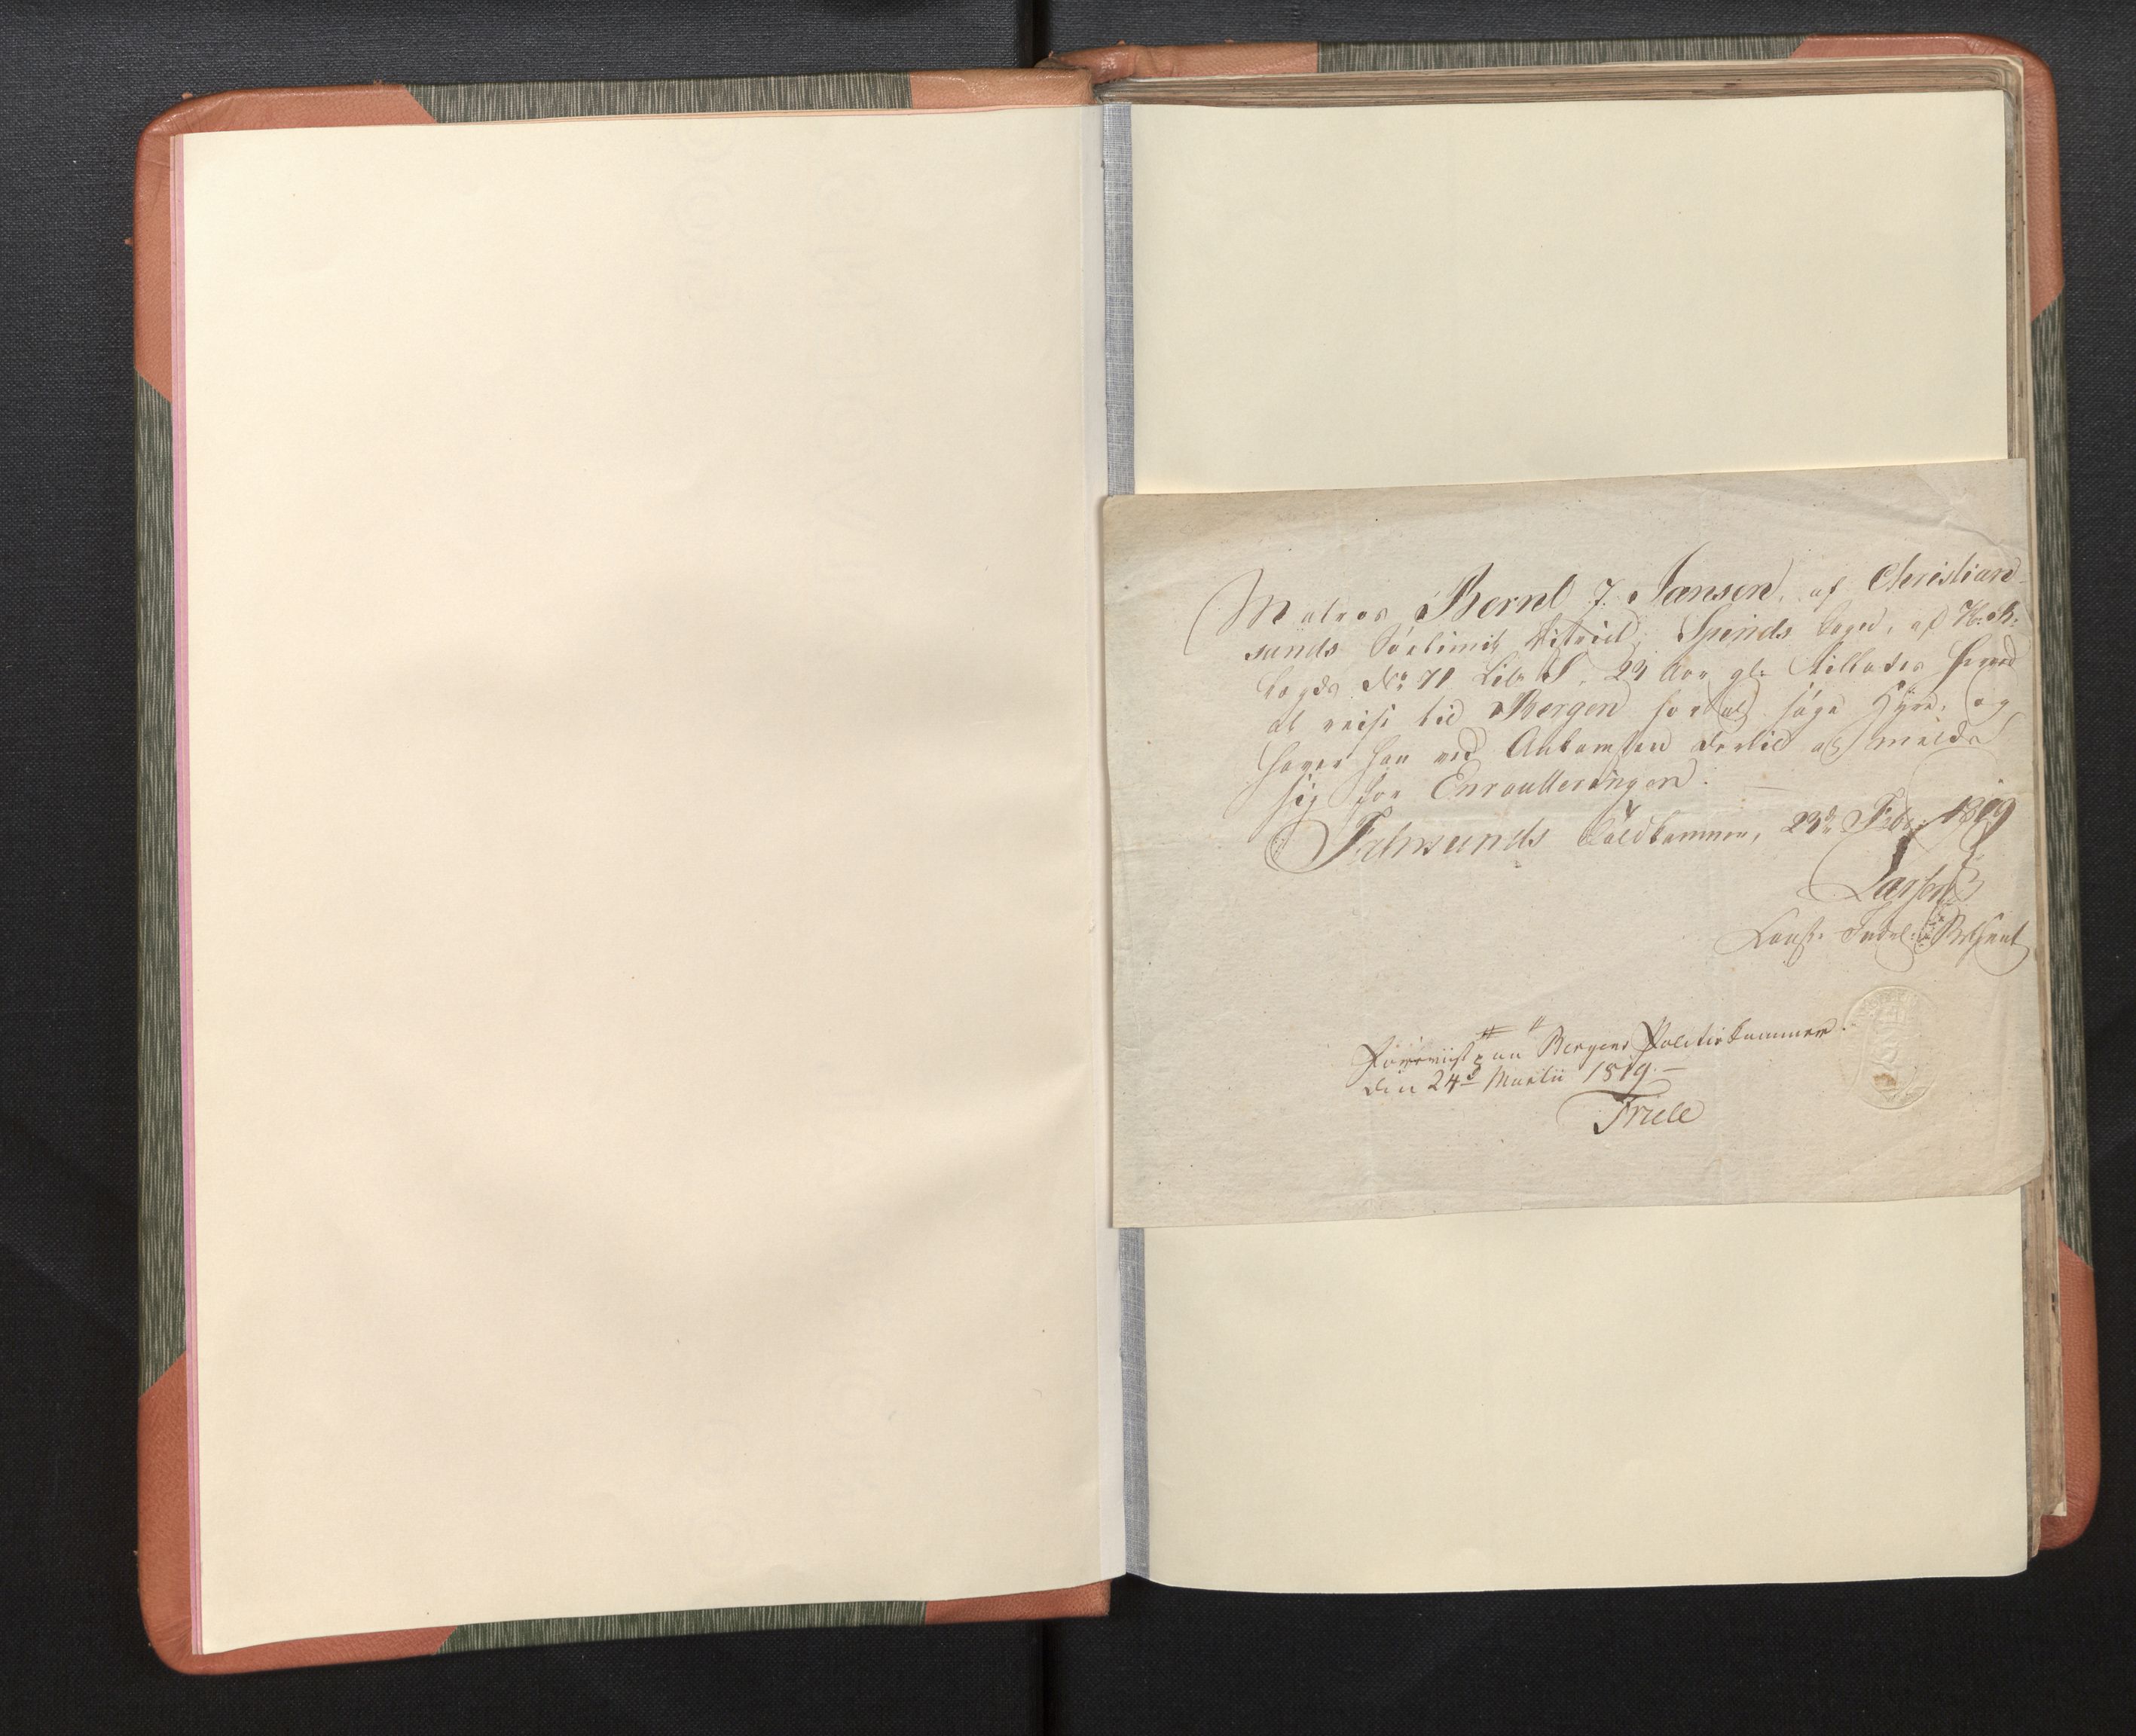 Matros Bernt J. Jansen, af Christian-
sunds Søelimit District, Spinds Laged, af H. A.
Lægds No 71 Litr S. 23 Aar gl. tillades herved
at reise til Bergen for at søge Hyre, og
haver han ved Ankomsten dertil at melde
sig for Enroulleringen.
Farsunds Toldkammer, 23de Febr. 1819
Larsen
Const.
Foreviist paa Bergens Politiekammer
den 24d Martii 1819.
Friele